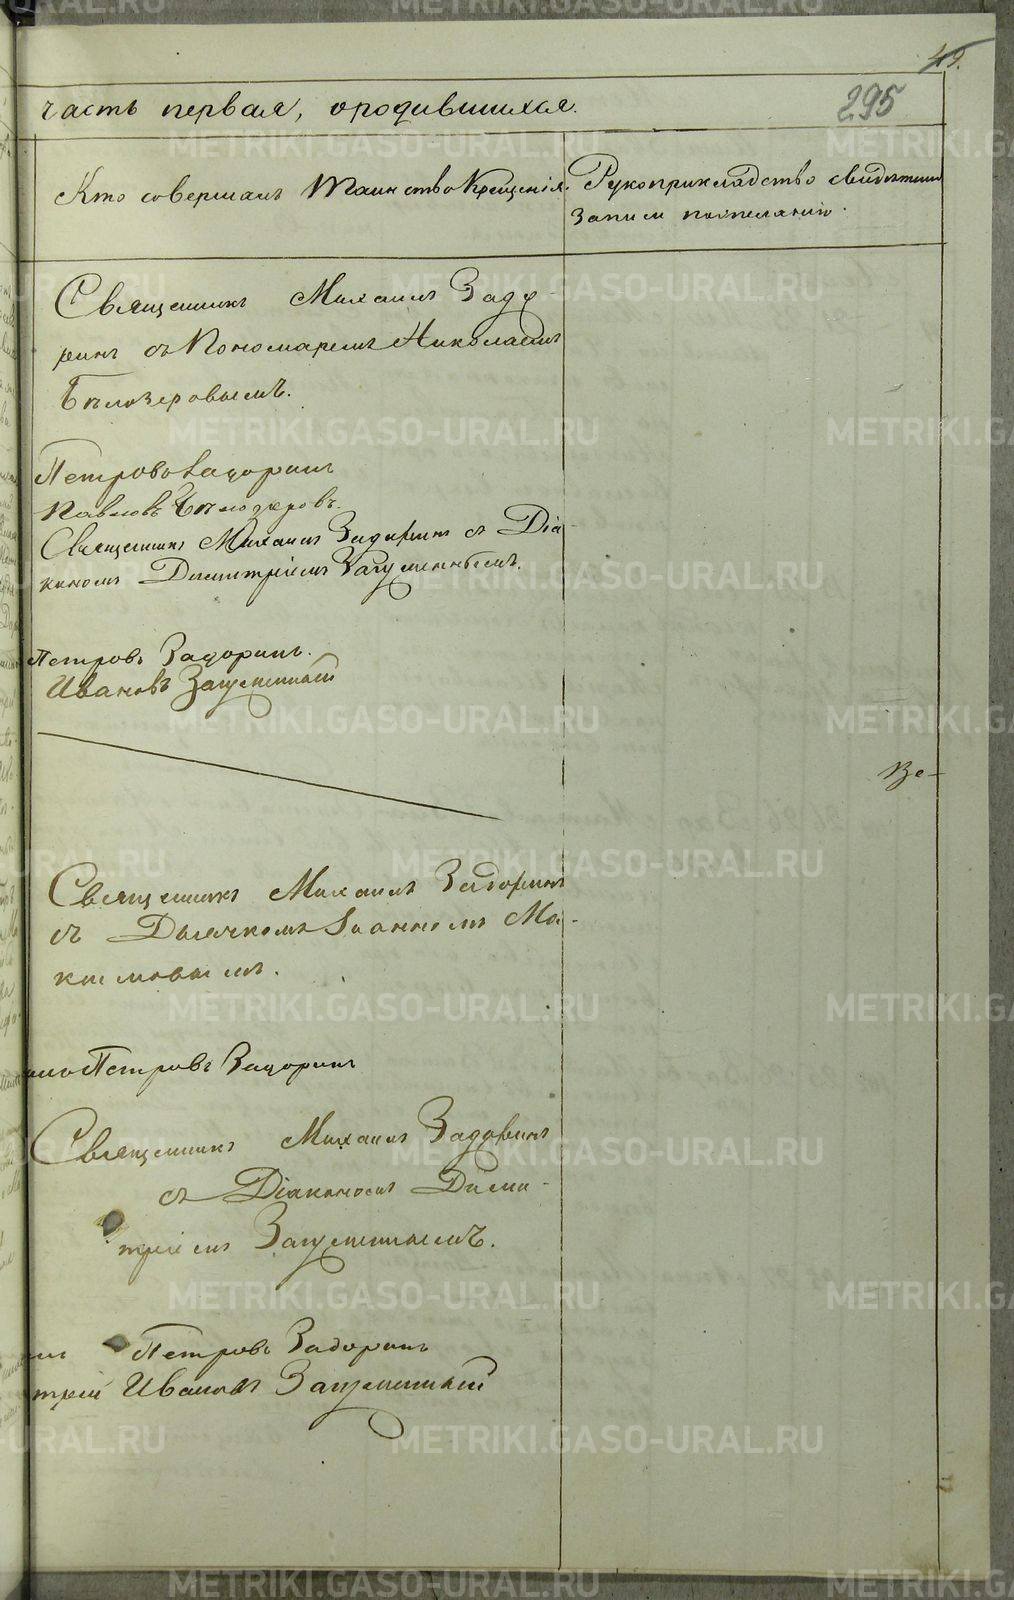 49.
295
часть первая, о родившихся.
Кто совершалъ Таинство Крещенія.
Рукоприкладство свидѣтелей
записи по желанію.
Священникъ Михаилъ Задо-
ринъ съ Пономаремъ Николаемъ
Бѣлозеровымъ.
Петровъ Задоринъ
Павловъ Бѣлозеровъ.
Священникъ Михаилъ Задоринъ съ Діа-
кономъ Димитріемъ Загуменнымъ.
Петровъ Задоринъ.
Ивановъ Загуменный
Ве-
Священникъ Михаилъ Задоринъ
съ Дьячкомъ Іоанномъ Ма-
ксимовымъ.
Петровъ Задоринъ
Священникъ Михаилъ Задоринъ
съ Діакономъ Дими-
тріемъ Загуменнымъ.
Петровъ Задоринъ
трій Ивановъ Загуменный
METRIKI.GASO-URAL.RU